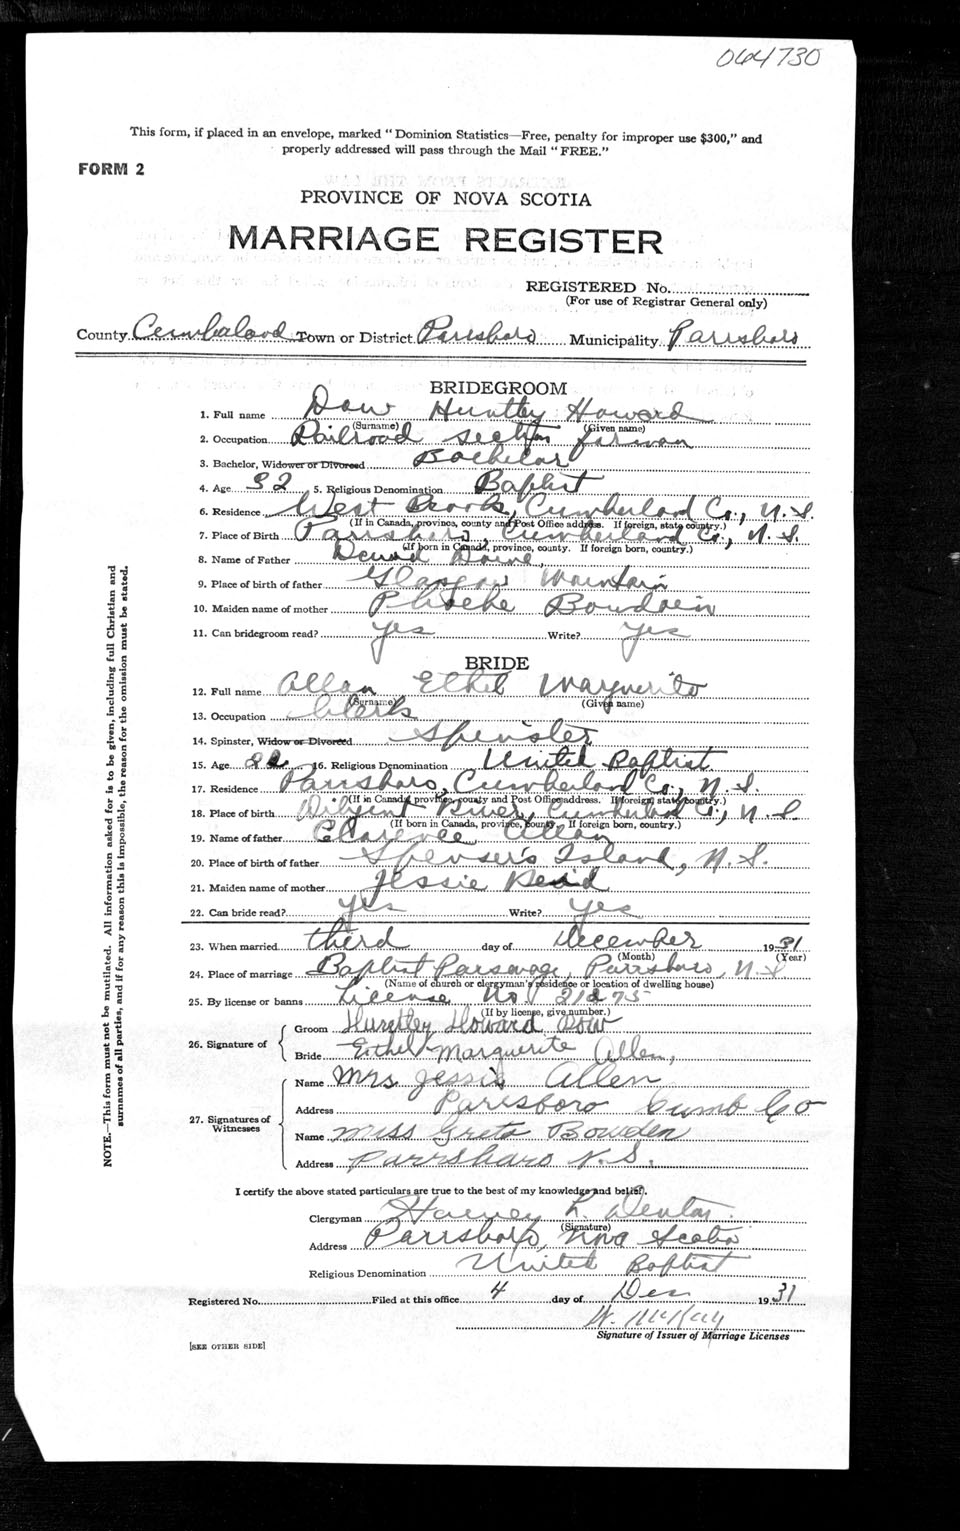 064730
This form, if placed in an envelope, marked "Dominion Statistics—Free, penalty for improper use $300," and
properly addressed will pass through the Mail "FREE."
FORM 2
PROVINCE OF NOVA SCOTIA
MARRIAGE REGISTER
REGISTERED No.
(For use of Registrar General only)
County Cumberland Town or District Parrsboro Municipality Parrsboro
BRIDEGROOM
1. Full name Dow Huntley Howard
(Surname) (Given name)
2. Occupation Railroad section forman
3. Bachelor, Widower or Divorced Bachelor
4. Age 32 5. Religious Denomination Baptist
6. Residence West Brook, Cumberland Co., N.S.
(If in Canada, province, county and Post Office address. If foreign, state country.)
7. Place of Birth Parrsboro, Cumberland Co., N.S.
(If born in Canada, province, county. If foreign born, country.)
8. Name of Father
9. Place of birth of father Glasgow Mountain
10. Maiden name of mother Phoebe Bowden
11. Can bridegroom read? yes Write? yes
BRIDE
12. Full name Allan Ethel Marguerite
(Surname) (Given name)
13. Occupation Clerk
14. Spinster, Widow or Divorced Spinster
15. Age 22 16. Religious Denomination United Baptist
17. Residence Parrsboro, Cumberland Co., N.S.
(If in Canada, province, county and Post Office address. If foreign, state country.)
18. Place of birth Diligent River, Cumberland Co., N.S
(If born in Canada, province, county. If foreign born, country.)
19. Name of father Clarence Allan
20. Place of birth of father Spenser's Island, N.S.
21. Maiden name of mother Jessie Reid
22. Can bride read? yes Write? yes
23. When married third day of December 1931
(Month) (Year)
24. Place of marriage Baptist Parsonage, Parrsboro, N.S
(Name of church or clergyman's residence or location of dwelling house)
25. By license or banns License No 21275
(If by license, give number.)
26. Signature of Groom Huntley Howard Dow
Bride Ethel Marguerite Allen,
27. Signatures of Witnesses
Name Mrs. Jessie Allen
Address Parrsboro Cumb Co
Name Miss Greta Bowden
Address Parrsboro N.S.
I certify the above stated particulars are true to the best of my knowledge and belief.
Clergyman Harvey L. Denton
(Signature)
Address Parrsboro, Nova Scotia
Religious Denomination United Baptist
Registered No. Filed at this office 4 day of Dec 1931
W. McKay
Signature of Issuer of Marriage Licenses
[SEE OTHER SIDE]
NOTE.—This form must not be mutilated. All information asked for is to be given, including full Christian and
surnames of all parties, and if for any reason this is impossible, the reason for the omission must be stated.